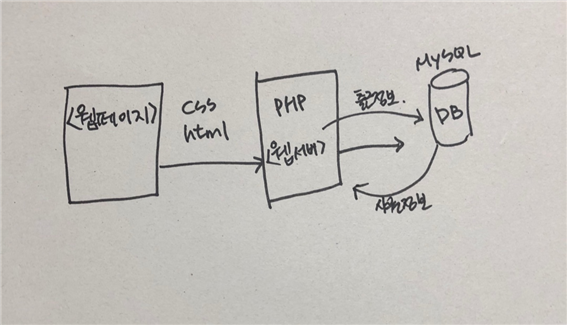 <웹페이지>
css
html
PHP
<웹서버>
출근정보.
MySQL
DB
사원정보